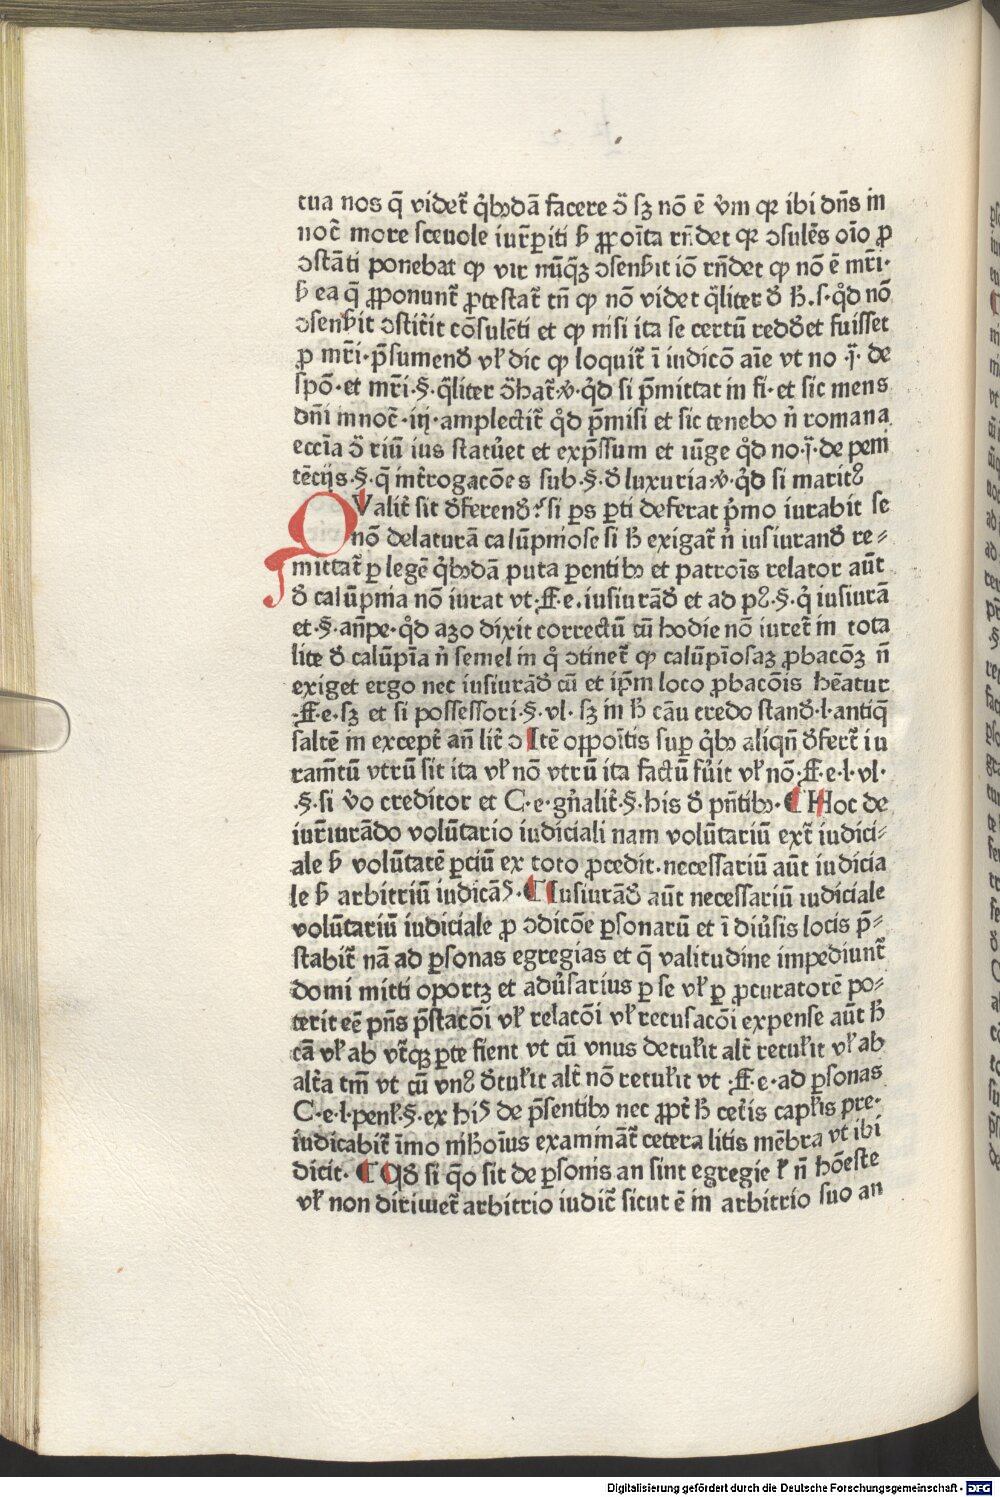 tua nos q̄ videt̃ q̇bꝫdā facere ↄ̈ ſꝫ nō ē v̇m qꝛ ibi dn̄s in
noc̄ more ſceuole iur̃ꝑiti ẜ ꝓpoı̄ta rn̄det qꝛ ↄſulēs oı̄o ꝓ
ↄſtāti ponebat ꝙ vir nūq̄ꝫ ↄſenẜit iō rn̄det ꝙ nō ē mr̄i·
ẜ ea q̄ ꝓponunt̃ ꝓteſtat̃ tn̄ ꝙ nō videt q̄liter ð ħ.ſ·q̊d nō
ↄſenẜit ↄſtit̓it cōſulēti et ꝙ niſi ita ſe certū redðet fuiſſet
ꝓ mr̄i·p̄ſumenð vł dic ꝙ loquit̃ ī iudicō aīe vt no ·j̄· de
ſpō·et mr̄i·§·q̄liter ðhat̃·ꝟ·q̊d ſi p̄mittat in fi·et ſic mens
dn̄i innoc̄·iij·amplectit̃ q̊d p̄miſi et ſic tenebo n̄ romana
eccīa ↄ̈ riū ius ſtatu̓et et exp̄ſſum et iūge q̊d no·j̄·de peni
tēcijs·§·q̄ int̓rogacōes ſub·§·ð luxuria·ꝟ·q̊d ſi maritꝰ
QValit̓ ſit ðferenð·ſi ꝑs ꝑti deferat p̓mo iurabit ſe
nō delaturā calūpnioſe ſi ħ exigat̃ n̄ iuſiuranð re⸗
mittat̃ ꝑ legē q̇bꝫdā puta ꝑentibꝫ et patroīs relator aūt
ð calūpnia nō iurat vt·ff·e·iuſiurāð et ad pꝰ·§·q̇ iuſiurā
et·§·an̄pe·q̊d azo dixit correctū cū hodie nō iuret̃ in tota
lite ð calūpīa n̄ ſemel in q̊ ↄtinet̃ ꝙ calūpīoſaꝫ ꝓbacōꝫ n̄
exiget ergo nec iuſiurāð cū et ip̄m loco ꝓbacōis hēatur
·ff·e·ſꝫ et ſi poſſeſſori·§·vl·ſꝫ in ħ cāu credo ſtanð·l·antiq̄
ſaltē in except̃ an̄ lit̃ ↄ Itē oppoı̄tis ſuꝑ q̇bꝫ aliqn̄ ðfert̃ iu
ram̄tū vtrū ſit ita vł nō vtrū ita factū fu̓it vł nō·ff·e·l·vl·
·§·ſi v̓o creditor et C·e·gn̄alit̓·§·his ð pn̄tibꝫ·¶ Hoc de
iur̃iurādo volūtario iudiciali nam volūtariū ext̃ iudici⸗
ale ẜ volūtatē ꝑciū ex toto ꝓcedit·neceſſariū aūt iudicia
le ẜ arbitriū iudicāꝭ·¶ Iuſiurāð aūt neceſſariū iudiciale
volūtariū iudiciale ꝓ ↄdicōe ꝑſonarū et ī diu̓ſis locis p̄⸗
ſtabit̃ nā ad ꝑſonas egregias et q̄ valitudine impediunt̃
domi mitti oportꝫ et adu̓ſarius ꝑ ſe vł ꝑ ꝓcuratorē po⸗
terit eē pn̄s p̄ſtacōi vł relacōi vł recuſacōi expenſe aūt ħ
cā vł ab vt̃qꝫ ꝑte fient vt cū vnus detułit alt̓ retułit vł ab
alt̓a tm̄ vt cū vnꝰ ðtułit alt̓ nō retułit vt ·ff·e·ad ꝑſonas
C·e·l·penł·§·ex hiꝭ de p̄ſentibꝫ nec ꝓpt̓ ħ cet̓is capłis pre·
iudicabit̃ īmo in ħoīus examināt̃ cetera litis mēbra vt ibi
dicit·¶ Qð ſi q̄o ſit de ꝑſonis an ſint egregie ł n̄ hōeſte
vł non diriuet̃ arbitrio iudic̃ ſicut ē in arbitrio ſuo an
Digitalisierung gefördert durch die Deutsche Forschungsgemeinschaft - DFG